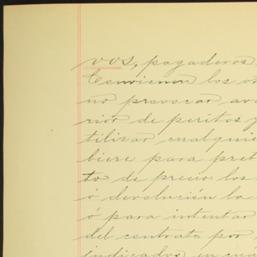 vos, pagaderos
Convienen los o
no provocar ava
rior de peritos y
tilizar cualquie
biere para pret
to de precio los
ó devolución la
ó para intentar
del contrato por
indicados en cua